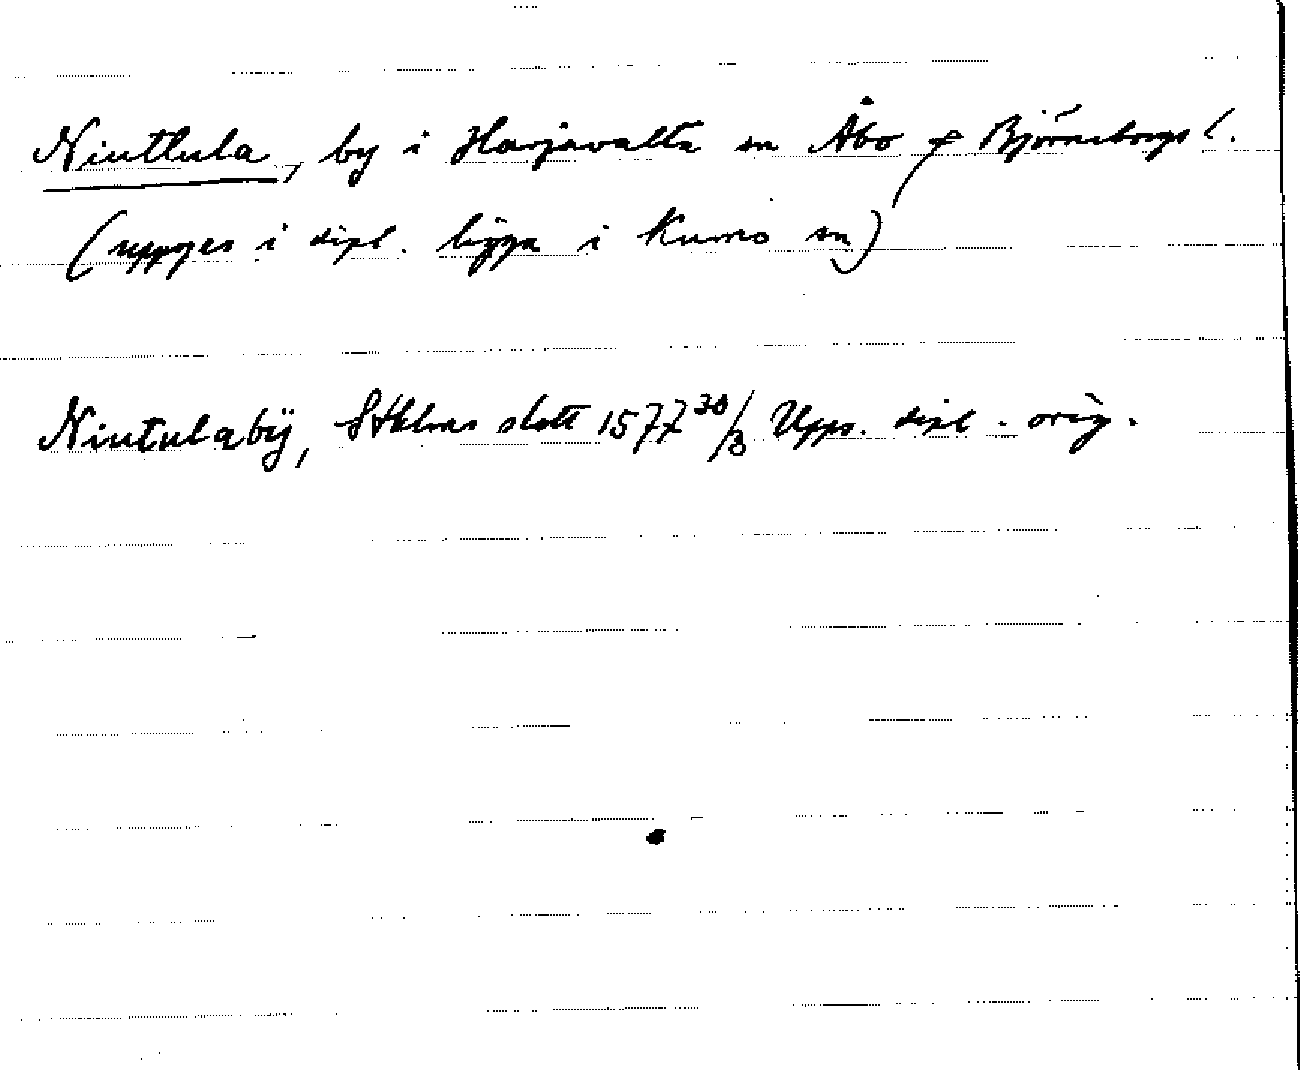 Niuttula, by i Harjavalta sn Åbo o Björneborgs l.
(uppges i dipl. ligga i Kumo sn)
Niutulabÿ, Sthlms slott 1577 30/3 Upps. dipl. orig.